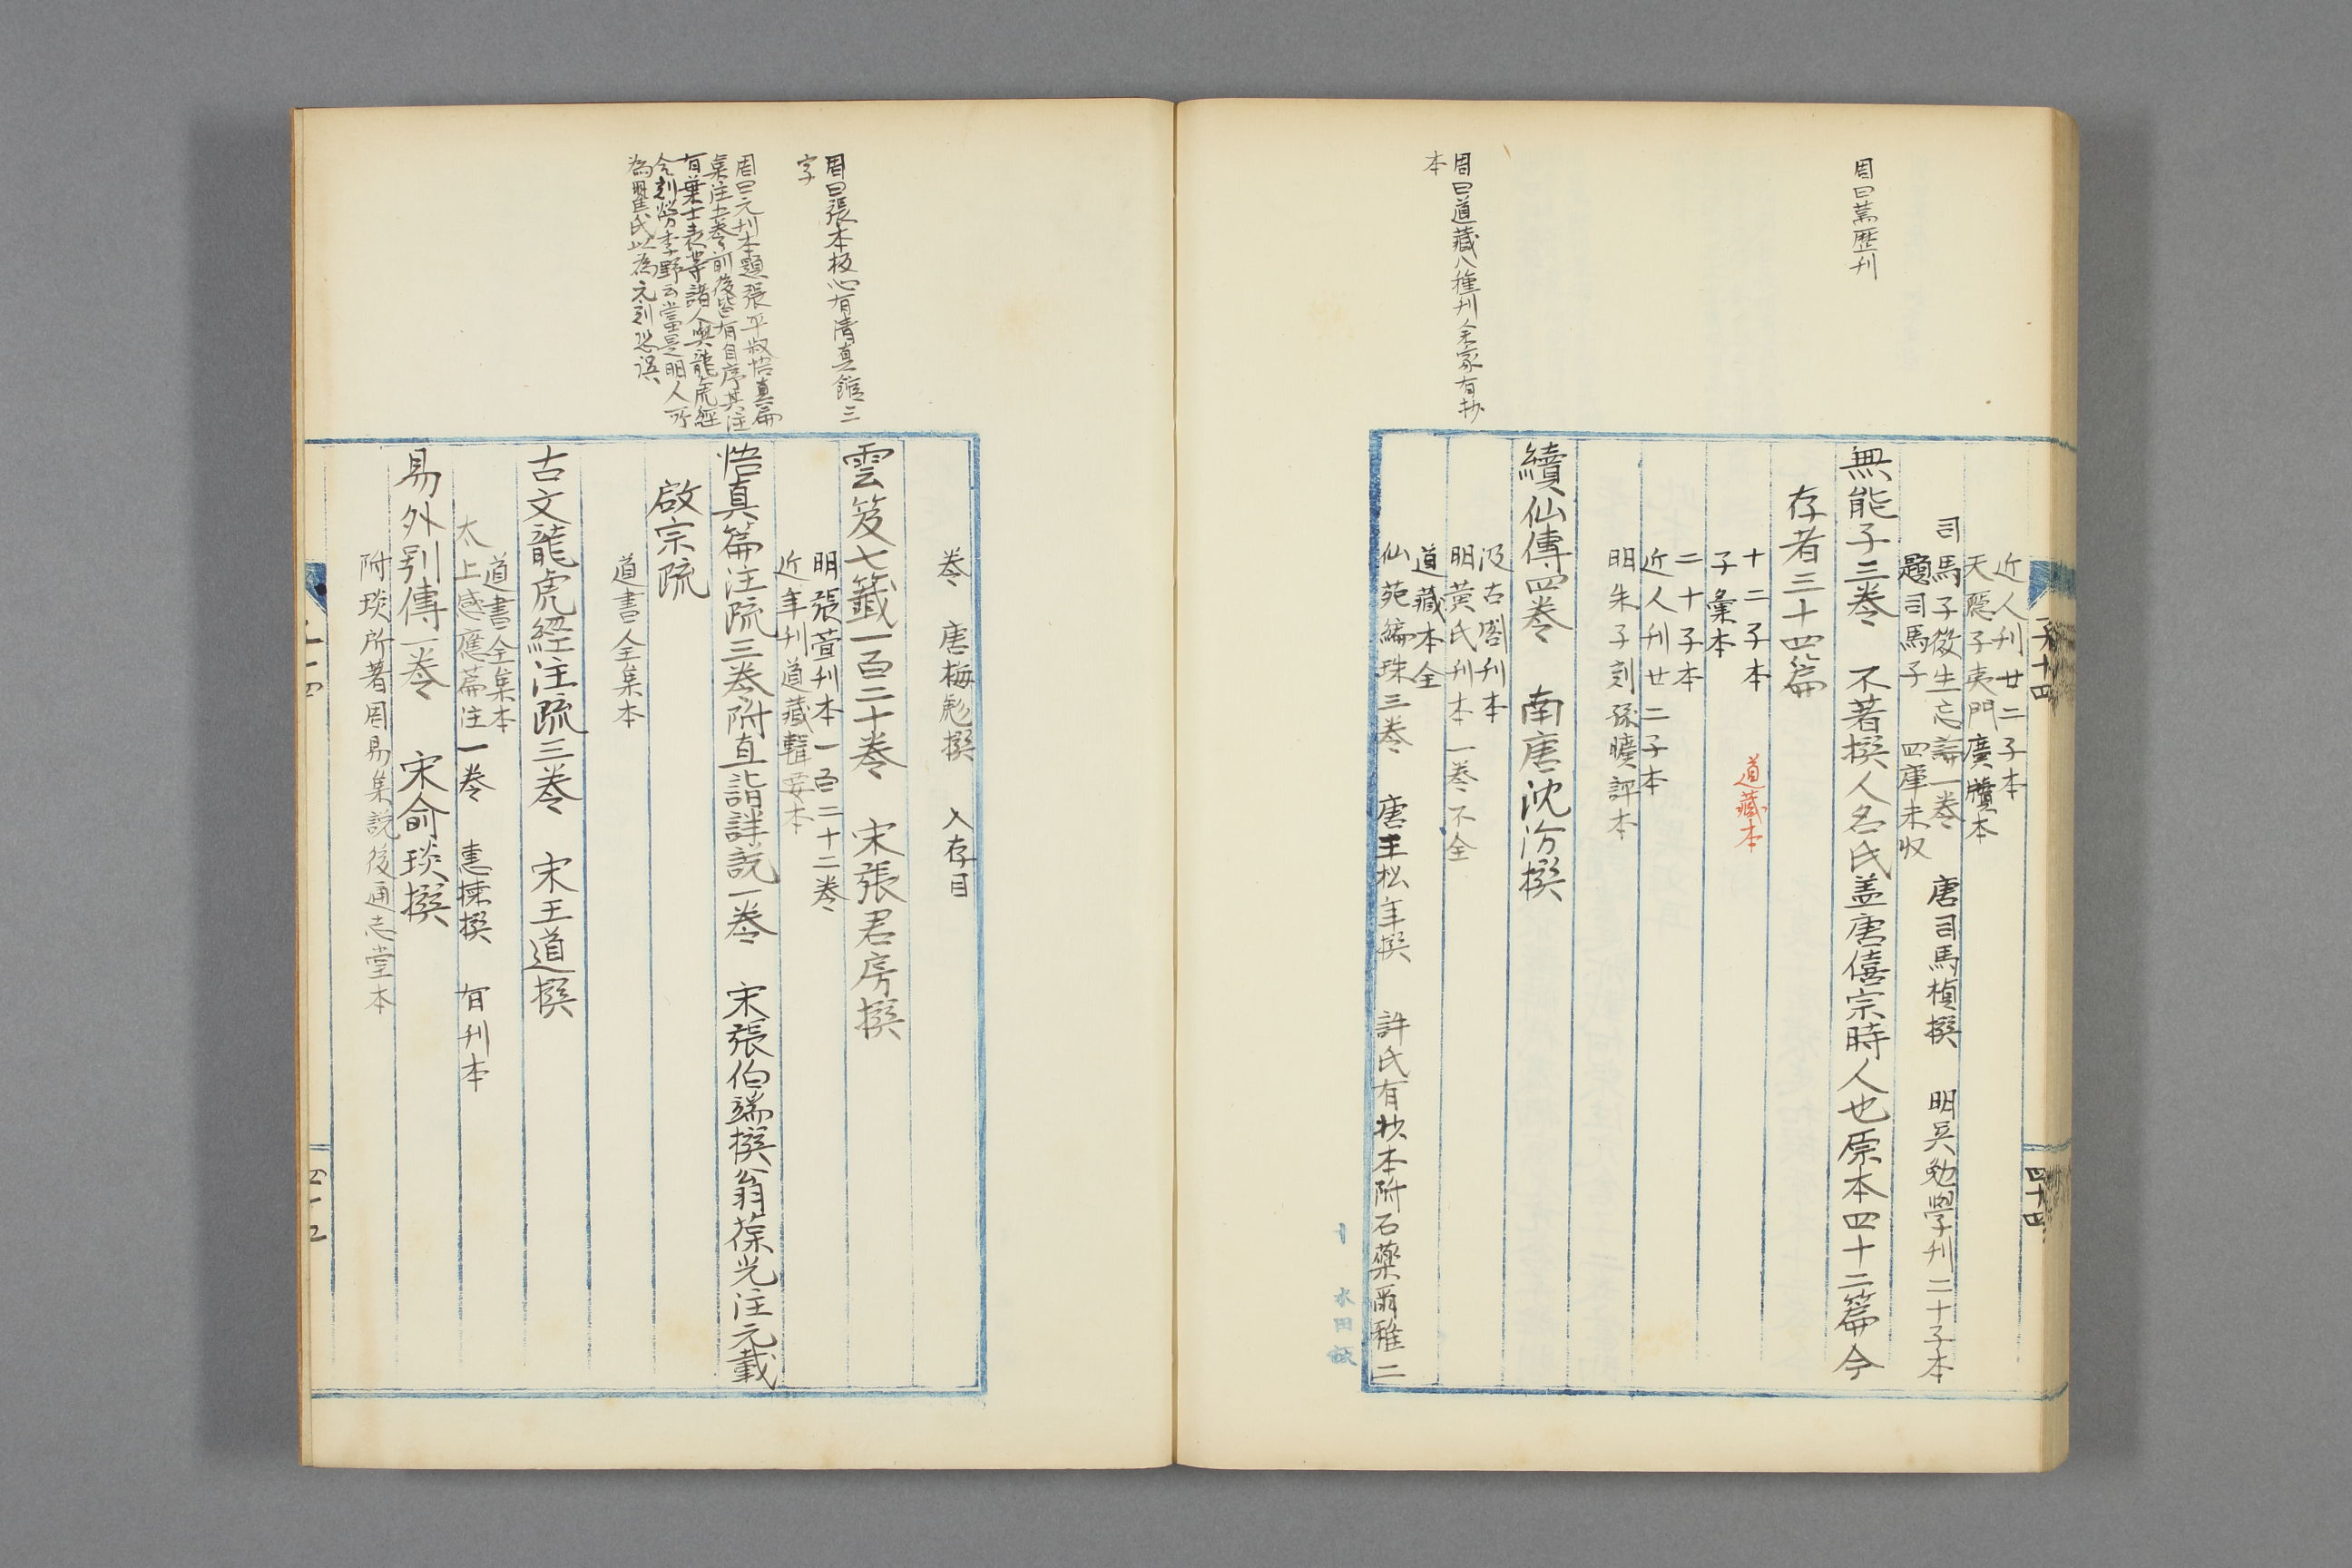 周曰萬歷刊
周曰道藏八種刊余家有抄
本
子十四
四十四
近人刊廿二子本
天隱子夷門廣牘本
司馬子微坐忘論一卷 唐司馬楨撰 明吳勉學刊二十子本
題司馬子 四庫未收
無能子三卷 不著撰人名氏盖唐僖宗時人也原本四十二篇今
存者三十四篇
十二子本 道藏本
子彙本
二十子本
近人刊廿二子本
明朱子刻孫曠評本
續仙傳四卷 南唐沈汾撰
汲古閣刊本
明黄氏刊本一卷不全
道藏本全
仙苑編珠三卷 唐王松年撰 許氏有抄本附石藥爾雅二
水田
周曰張本板心有清真館三
字
周曰元刊本題張平叔悟真篇
集注五卷前後皆有自序其注
有葉士表等諸人與龍虎經
今刻勞季野云當是明人所
為瞿氏以為元刻恐誤
卷 唐梅彪撰 入存目
雲笈七籤一百二十卷 宋張君房撰
明張萱刊本一百二十二卷
近年刊道藏輯要本
悟真篇注疏三卷附直詣詳說一卷 宋張伯端撰翁葆光注元戴
啟宗疏
道書全集本
古文龍虎經注疏三卷 宋王道撰
道書全集本
太上感應篇注一卷 惠棟撰 有刊本
易外别傳一卷 宋俞琰撰
附琰所著周易集說後通志堂本